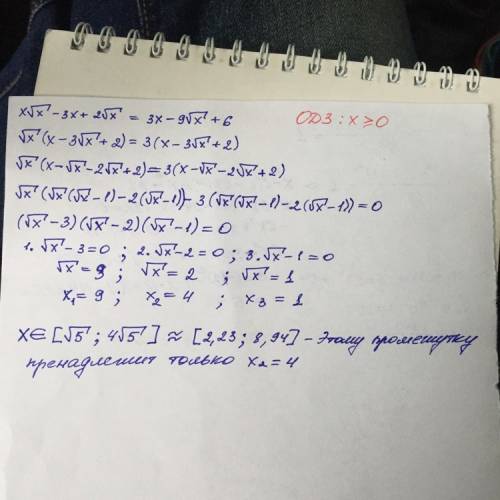 x√x - 3x + 2√x = 3x - 9√x + 6 ОДЗ: x ≥ 0
√x (x - 3√x + 2) = 3(x - 3√x + 2)
√x (x - √x - 2√x + 2) = 3(x - √x - 2√x + 2)
√x (√x (√x - 1) - 2(√x - 1)) - 3(√x (√x - 1) - 2(√x - 1)) = 0
(√x - 3)(√x - 2)(√x - 1) = 0
1. √x - 3 = 0 ; 2. √x - 2 = 0 ; 3. √x - 1 = 0
√x = 3 ; √x = 2 ; √x = 1
x₁ = 9 ; x₂ = 4 ; x₃ = 1
X ∈ [√5 ; 4√5] ≈ [2,23 ; 8,94] - Этому промежутку
пренадлежит только x₂ = 4